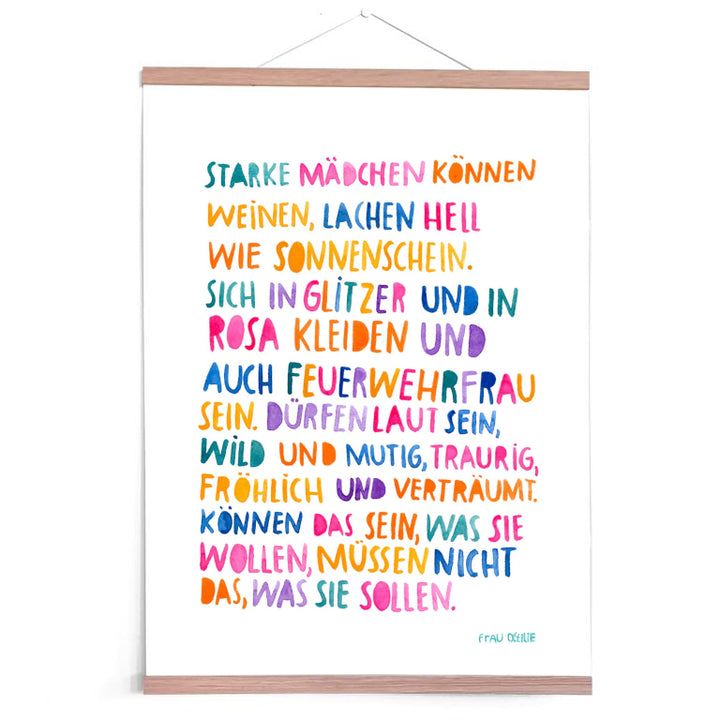 STARKE MÄDCHEN KÖNNEN
WEINEN, LACHEN HELL
WIE SONNENSCHEIN.
SICH IN GLITZER UND IN
ROSA KLEIDEN UND
AUCH FEUERWEHRFRAU
SEIN. DÜRFEN LAUT SEIN,
WILD UND MUTIG, TRAURIG,
FRÖHLICH UND VERTRÄUMT.
KÖNNEN DAS SEIN, WAS SIE
WOLLEN, MÜSSEN NICHT
DAS, WAS SIE SOLLEN.
FRAU OTTILIE